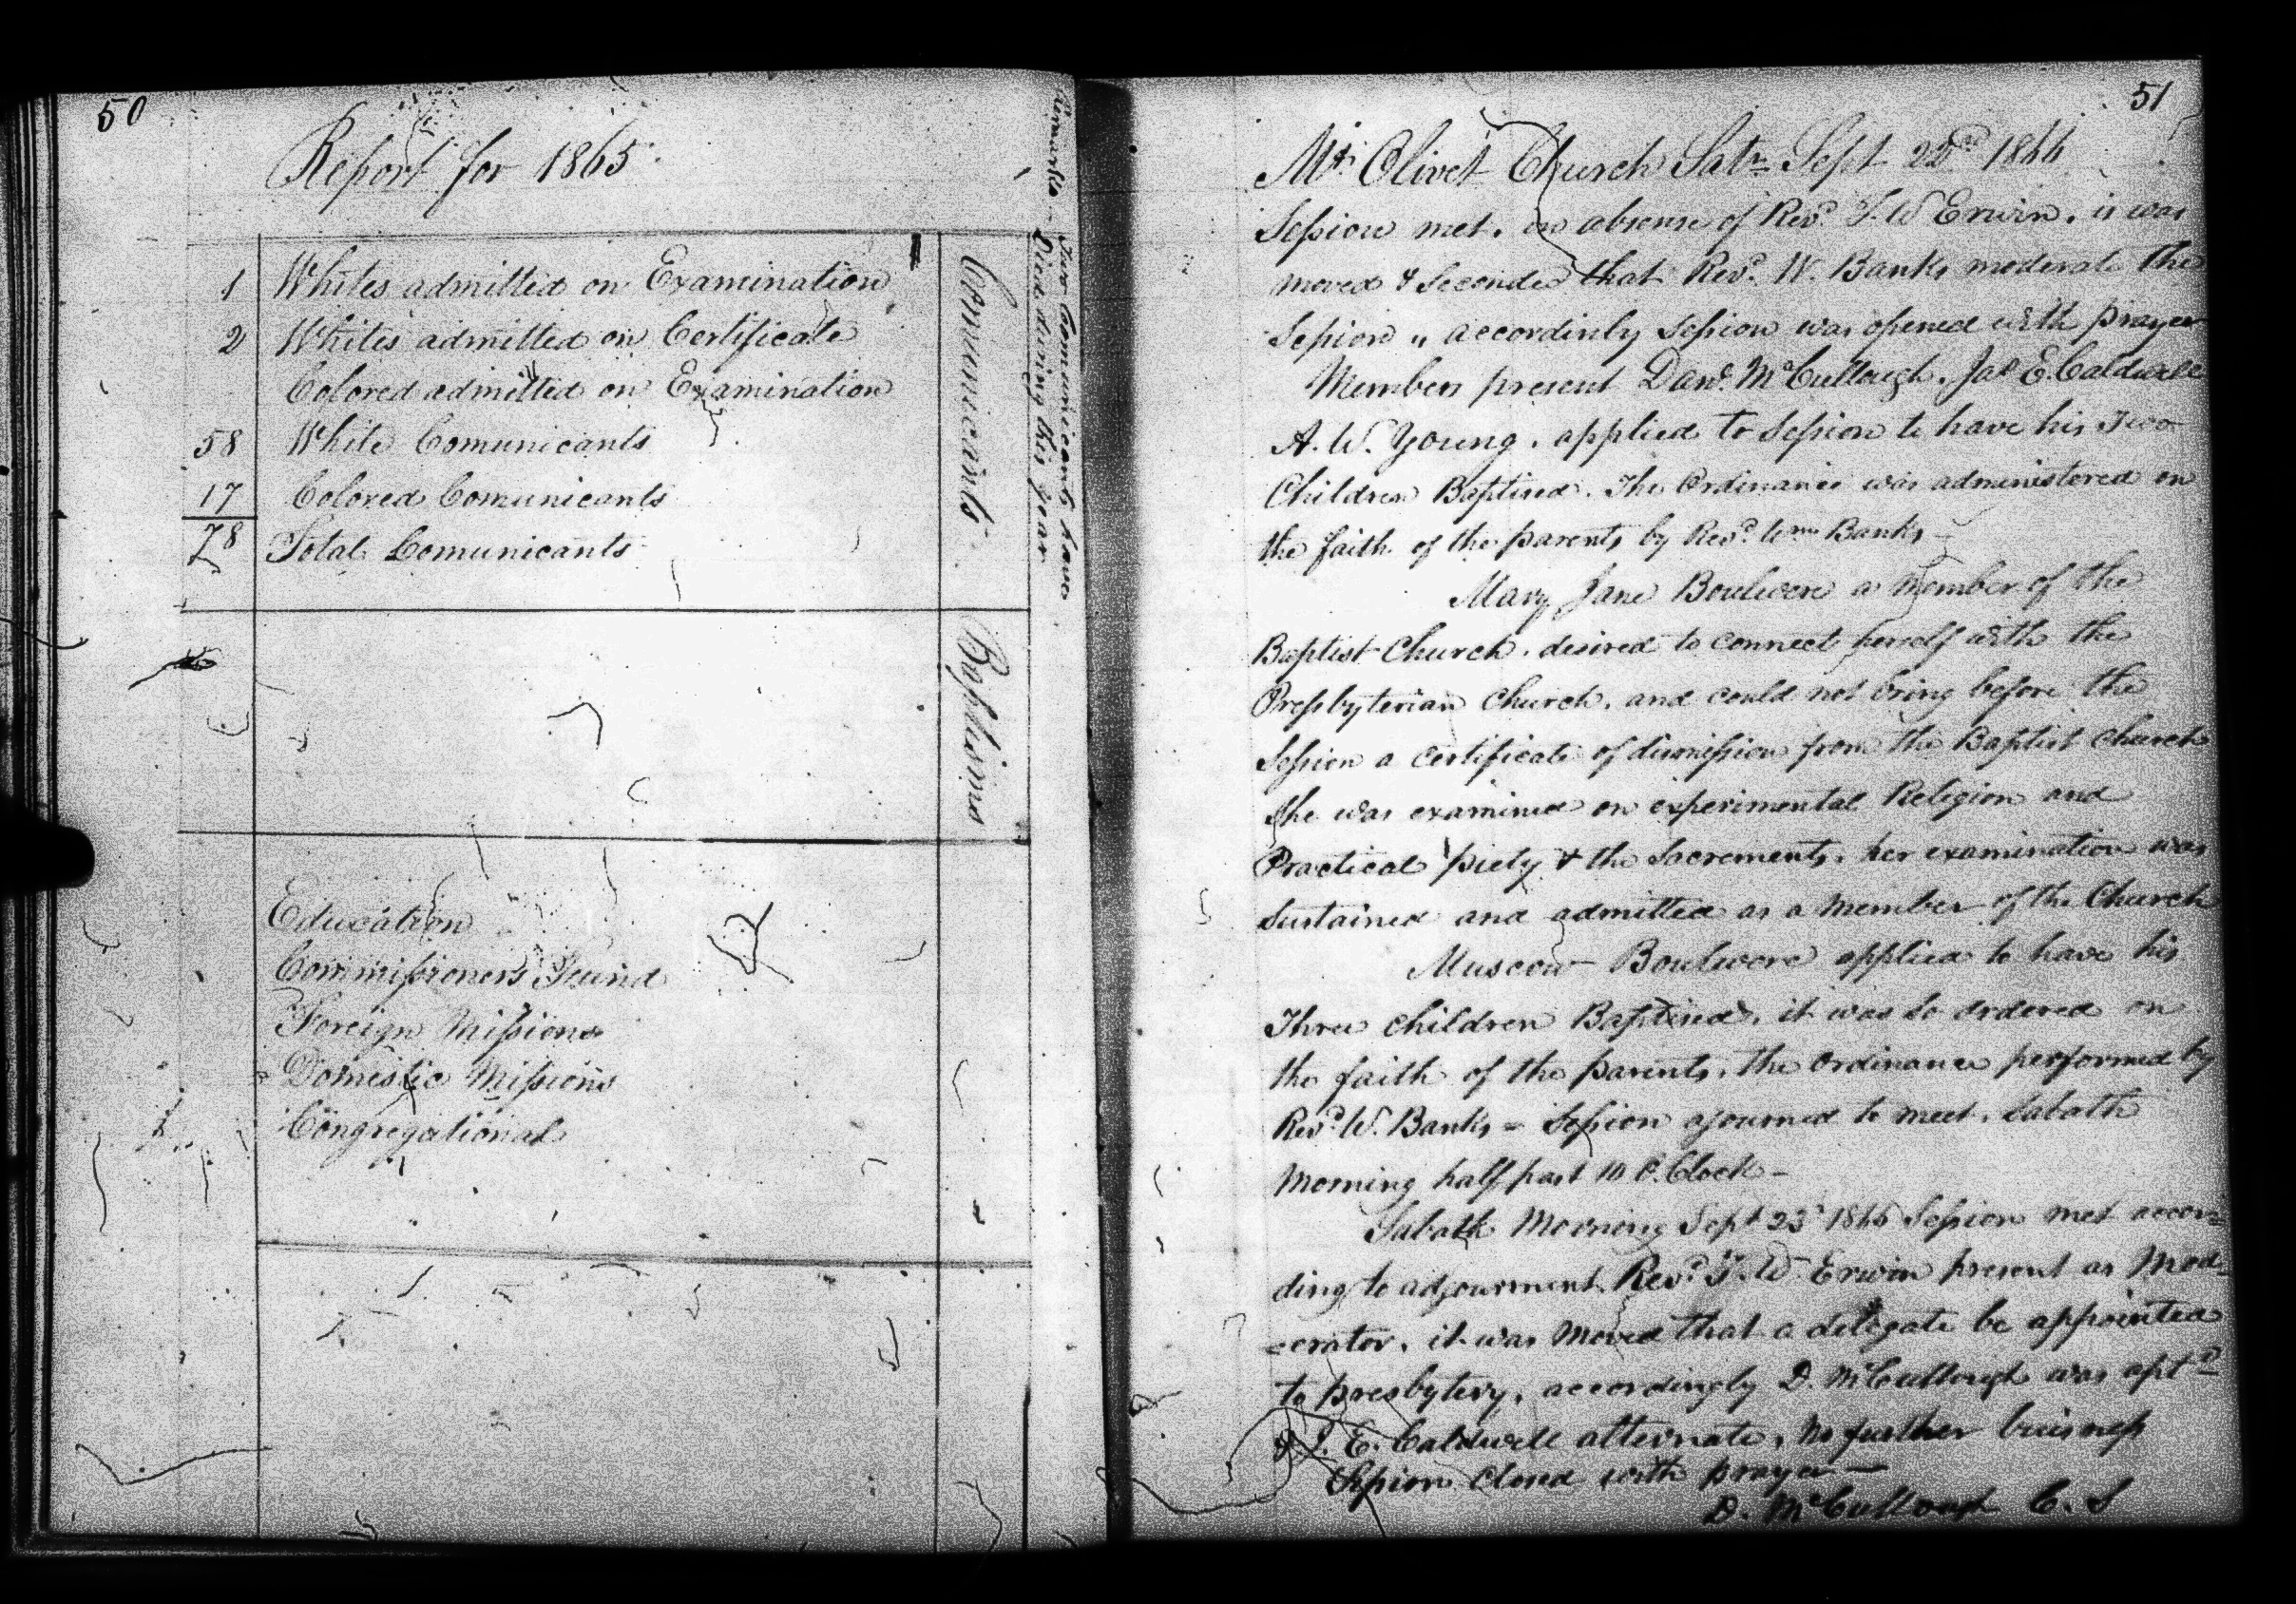 50
Report for 1865
Remarks - Two Comunicants have
Died during this year
1 Whites admitted on Examination
2 Whites admitted on Certificate
Colored admitted on Examination
58 White Comunicants
17 Colored Comunicants
78 Total Comunicants
Comunicants
Baptisims
Education
Commissioners Fund
Foreign Missions
Domestic Missions
Congregational
51
Mt. Olivet Church Satr Sept 22nd 1866
Session met, in absense of Revd T. W Erwin, it was
moved & seconded that Revd W. Banks moderate the
Session " accordinly Session was opened with prayer
Members present Danl. McCullough. Jas E. Caldwell
A. W. Young. applied to Session to have his Two
Children Baptised. The Ordinance was administered on
the faith of the parents by Revd Wm Banks -
Mary Jane Boulware a Member of the
Baptist Church. desired to connect herself with the
Presbyterian Church. and could not bring before the
Session a certificate of dismission from the Baptist Church
She was examined on experimental Religion and
Practical piety & the Sacrements. her examination was
sustained and admitted as a Member of the Church
Muscow Boulware applied to have his
Three children Baptised. it was so ordered on
the faith of the parents. the ordinance performed by
Revd W. Banks - Session ajourned to meet. Sabath
Morning half past 10 O.Clock -
Sabath Morning Sept 23d 1866 Session met accor=
ding to adjourment. Revd T. W. Erwin present as Mod=
=erator. it was moved that a delegate be appointed
to presbytery. accordingly D. McCullough was aptd
& J. E. Caldwell alternate. No further buisness
Session closed with prayer —
D. McCullough C. S